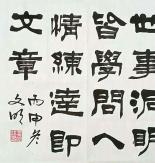 世事洞明
皆學問人
情練達即
文章
丙申